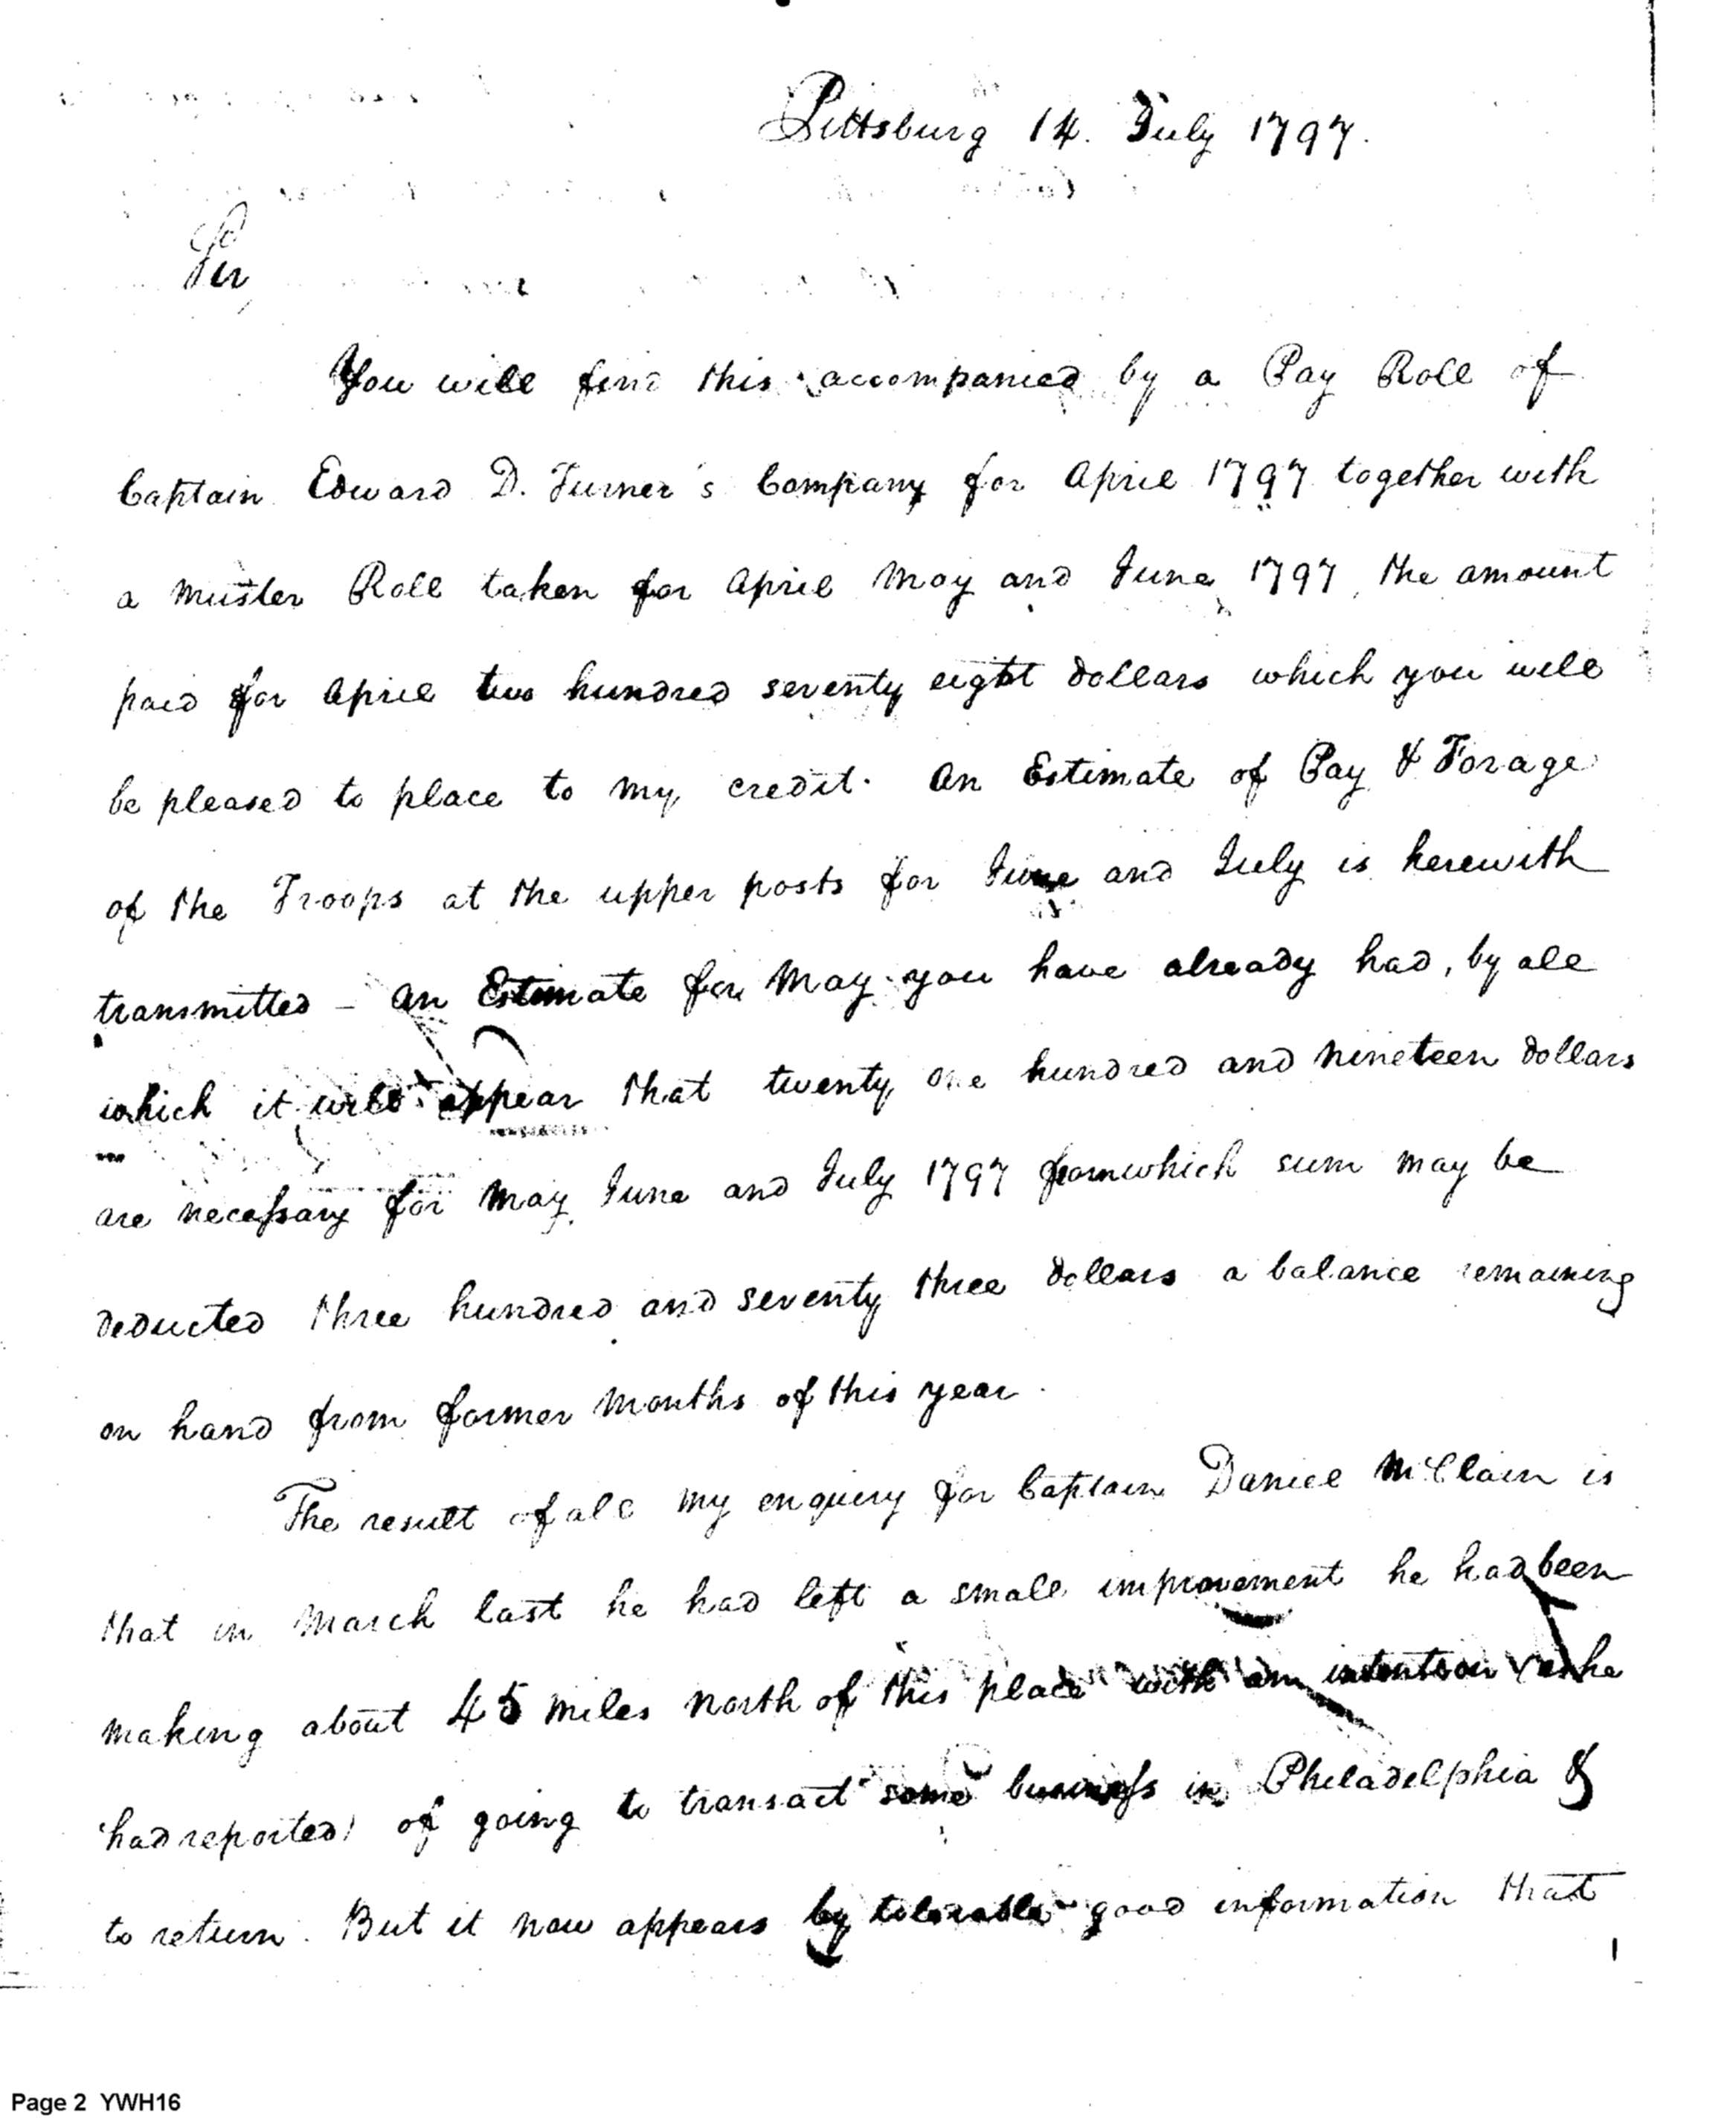 Pittsburg 14. July 1797.
Sir,
You will find this accompanied by a Pay Roll of
Captain Edward D. Turner's Company for April 1797 together with
a Muster Roll taken for April May and June 1797, the amount
paid for April two hundred seventy eight dollars which you will
be pleased to place to my credit. An Estimate of Pay & Forage
of the Troops at the upper posts for June and July is herewith
transmitted – An Estimate for May you have already had, by all
which it will appear that twenty one hundred and nineteen dollars
are necessary for May June and July 1797 from which sum may be
deducted three hundred and seventy three dollars a balance remaining
on hand from former Months of this year.
The result of all my enquiry for Captain Daniel McClain is
that in March last he had left a small improvement he had been
making about 45 Miles North of this place with an intention (as he
had reported) of going to transact some business in Philadelphia &
to return. But it now appears by tolerable good information that
Page 2 YWH16